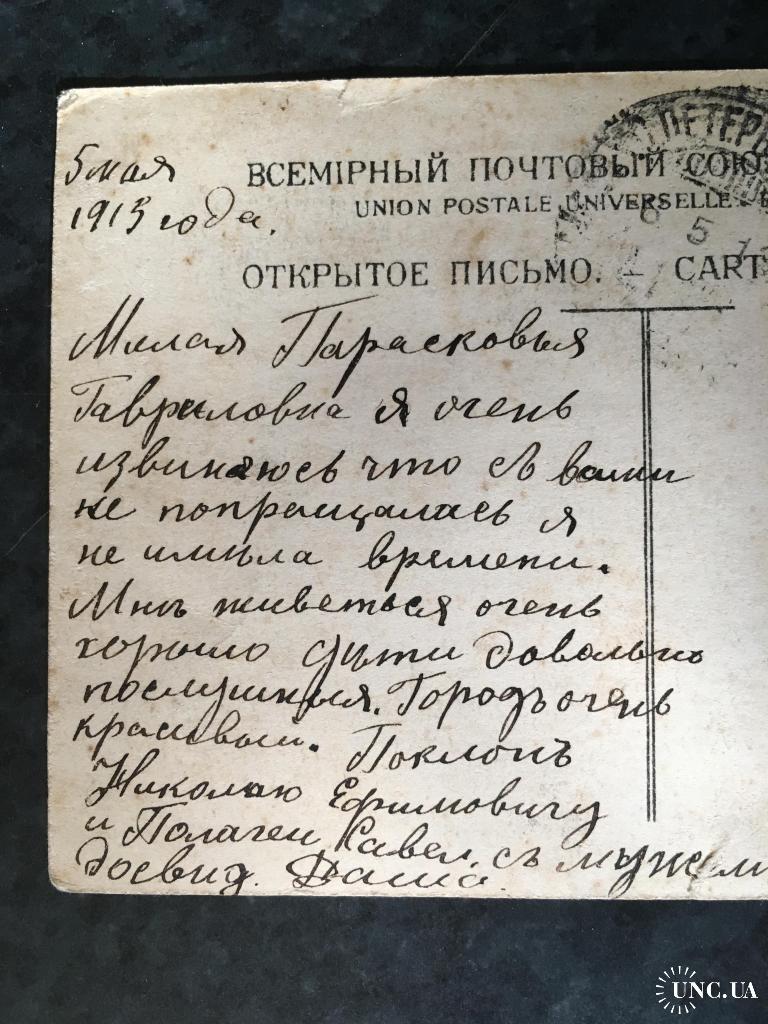 5 мая
1913 года.
ВСЕМІРНЫЙ ПОЧТОВЫЙ СОЮ
UNION POSTALE UNIVERSELLE.
ОТКРЫТОЕ ПИСЬМО. — CART
ПЕТЕР
5
Милая Парасковья
Гавриловна я очень
извиняюсь что съ вами
не попращалась я
не имѣла времени.
Мнѣ живеться очень
хорошо дѣти довольно
послушныя. Городъ очень
красивый. Поклонъ
Николаю Ефимовичу
и Полагеи Савел. съ мужем
досвид. Даша.
UNC.UA